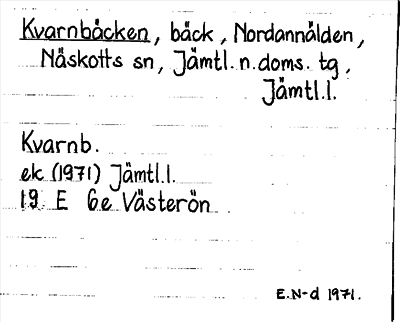 Kvarnbäcken, bäck, Nordannälden,
Näskotts sn, Jämtl. n. doms. tg,
Jämtl.l.
Kvarnb.
ek (1971) Jämtl.l.
19 E 6e Västerön
E.N-d 1971.